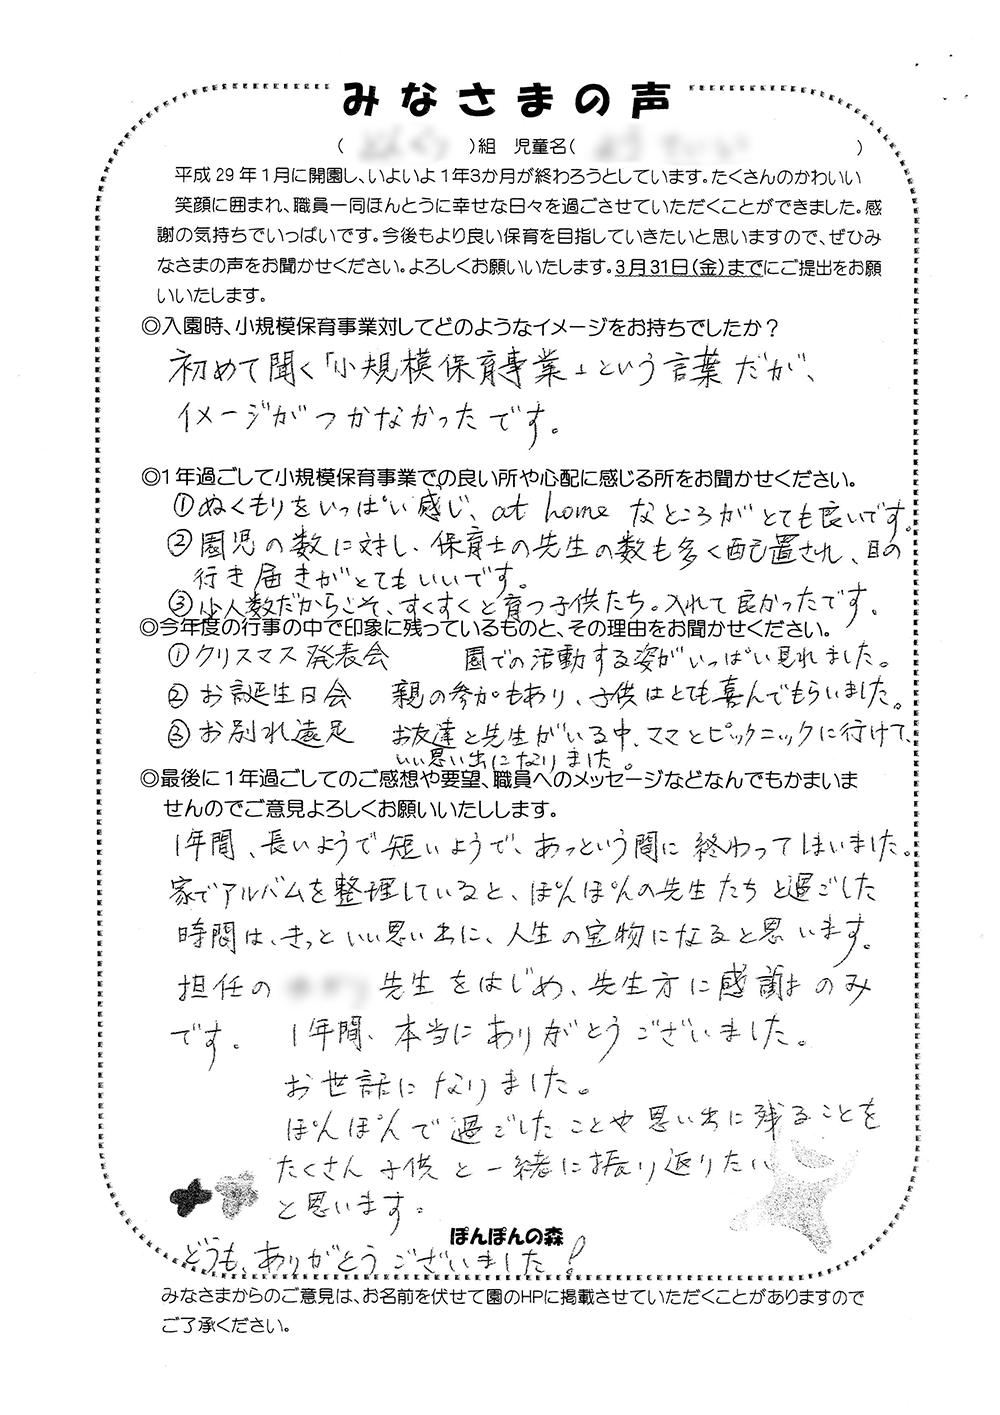 みなさまの声
(　　)組　児童名(　　)
平成29年1月に開園し、いよいよ1年3か月が終わろうとしています。たくさんのかわいい
笑顔に囲まれ、職員一同ほんとうに幸せな日々を過ごさせていただくことができました。感
謝の気持ちでいっぱいです。今後もより良い保育を目指していきたいと思いますので、ぜひみ
なさまの声をお聞かせください。よろしくお願いいたします。3月31日(金)までにご提出をお願
いいたします。
◎入園時、小規模保育事業対してどのようなイメージをお持ちでしたか?
初めて聞く「小規模保育事業」という言葉だが、
イメージがつかなかったです。
◎1年過ごして小規模保育事業での良い所や心配に感じる所をお聞かせください。
①ぬくもりをいっぱい感じ、at home なところがとても良いです。
②園児の数に対し、保育士の先生の数も多く配置され、目の
行き届きがとてもいいです。
③少人数だからこそ、すくすくと育つ子供たち。入れて良かったです。
◎今年度の行事の中で印象に残っているものと、その理由をお聞かせください。
①クリスマス発表会　園での活動する姿がいっぱい見れました。
②お誕生日会　親の参加もあり、子供はとても喜んでもらいました。
③お別れ遠足　お友達と先生がいる中、ママとピックニックに行けて、
いい思い出になりました。
◎最後に1年過ごしてのご感想や要望、職員へのメッセージなどなんでもかまいま
せんのでご意見よろしくお願いいたしします。
1年間、長いようで短いようで、あっという間に終わってしまいました。
家でアルバムを整理していると、ぽんぽんの先生たちと過ごした
時間は、きっといい思い出に、人生の宝物になると思います。
担任の　先生をはじめ、先生方に感謝のみ
です。　1年間、本当にありがとうございました。
お世話になりました。
ぽんぽんで過ごしたことや思い出に残ることを
たくさん子供と一緒に振り返りたい
と思います。
ぽんぽんの森
どうも、ありがとうございました!
みなさまからのご意見は、お名前を伏せて園のHPに掲載させていただくことがありますので
ご了承ください。